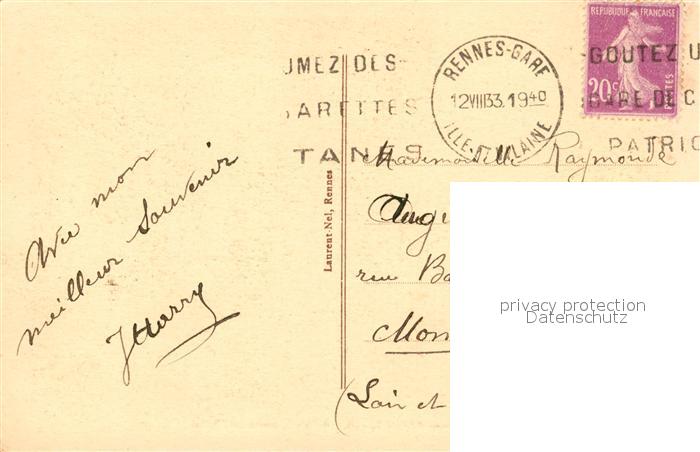 Avec mon
meilleur Souvenir
JHarry
Laurent-Nel, Rennes
UMEZ DES
ARETTES
TANES
RENNES-GARE
12 VIII 33. 19 40
ILLE-ET-VILAINE
REPUBLIQUE FRANÇAISE
20c
POSTES
GOUTEZ U
GARE DE C
PATRIO
Mademoiselle Raymonde
Aug
rue Ba
Mon
(Loir et
privacy protection
Datenschutz